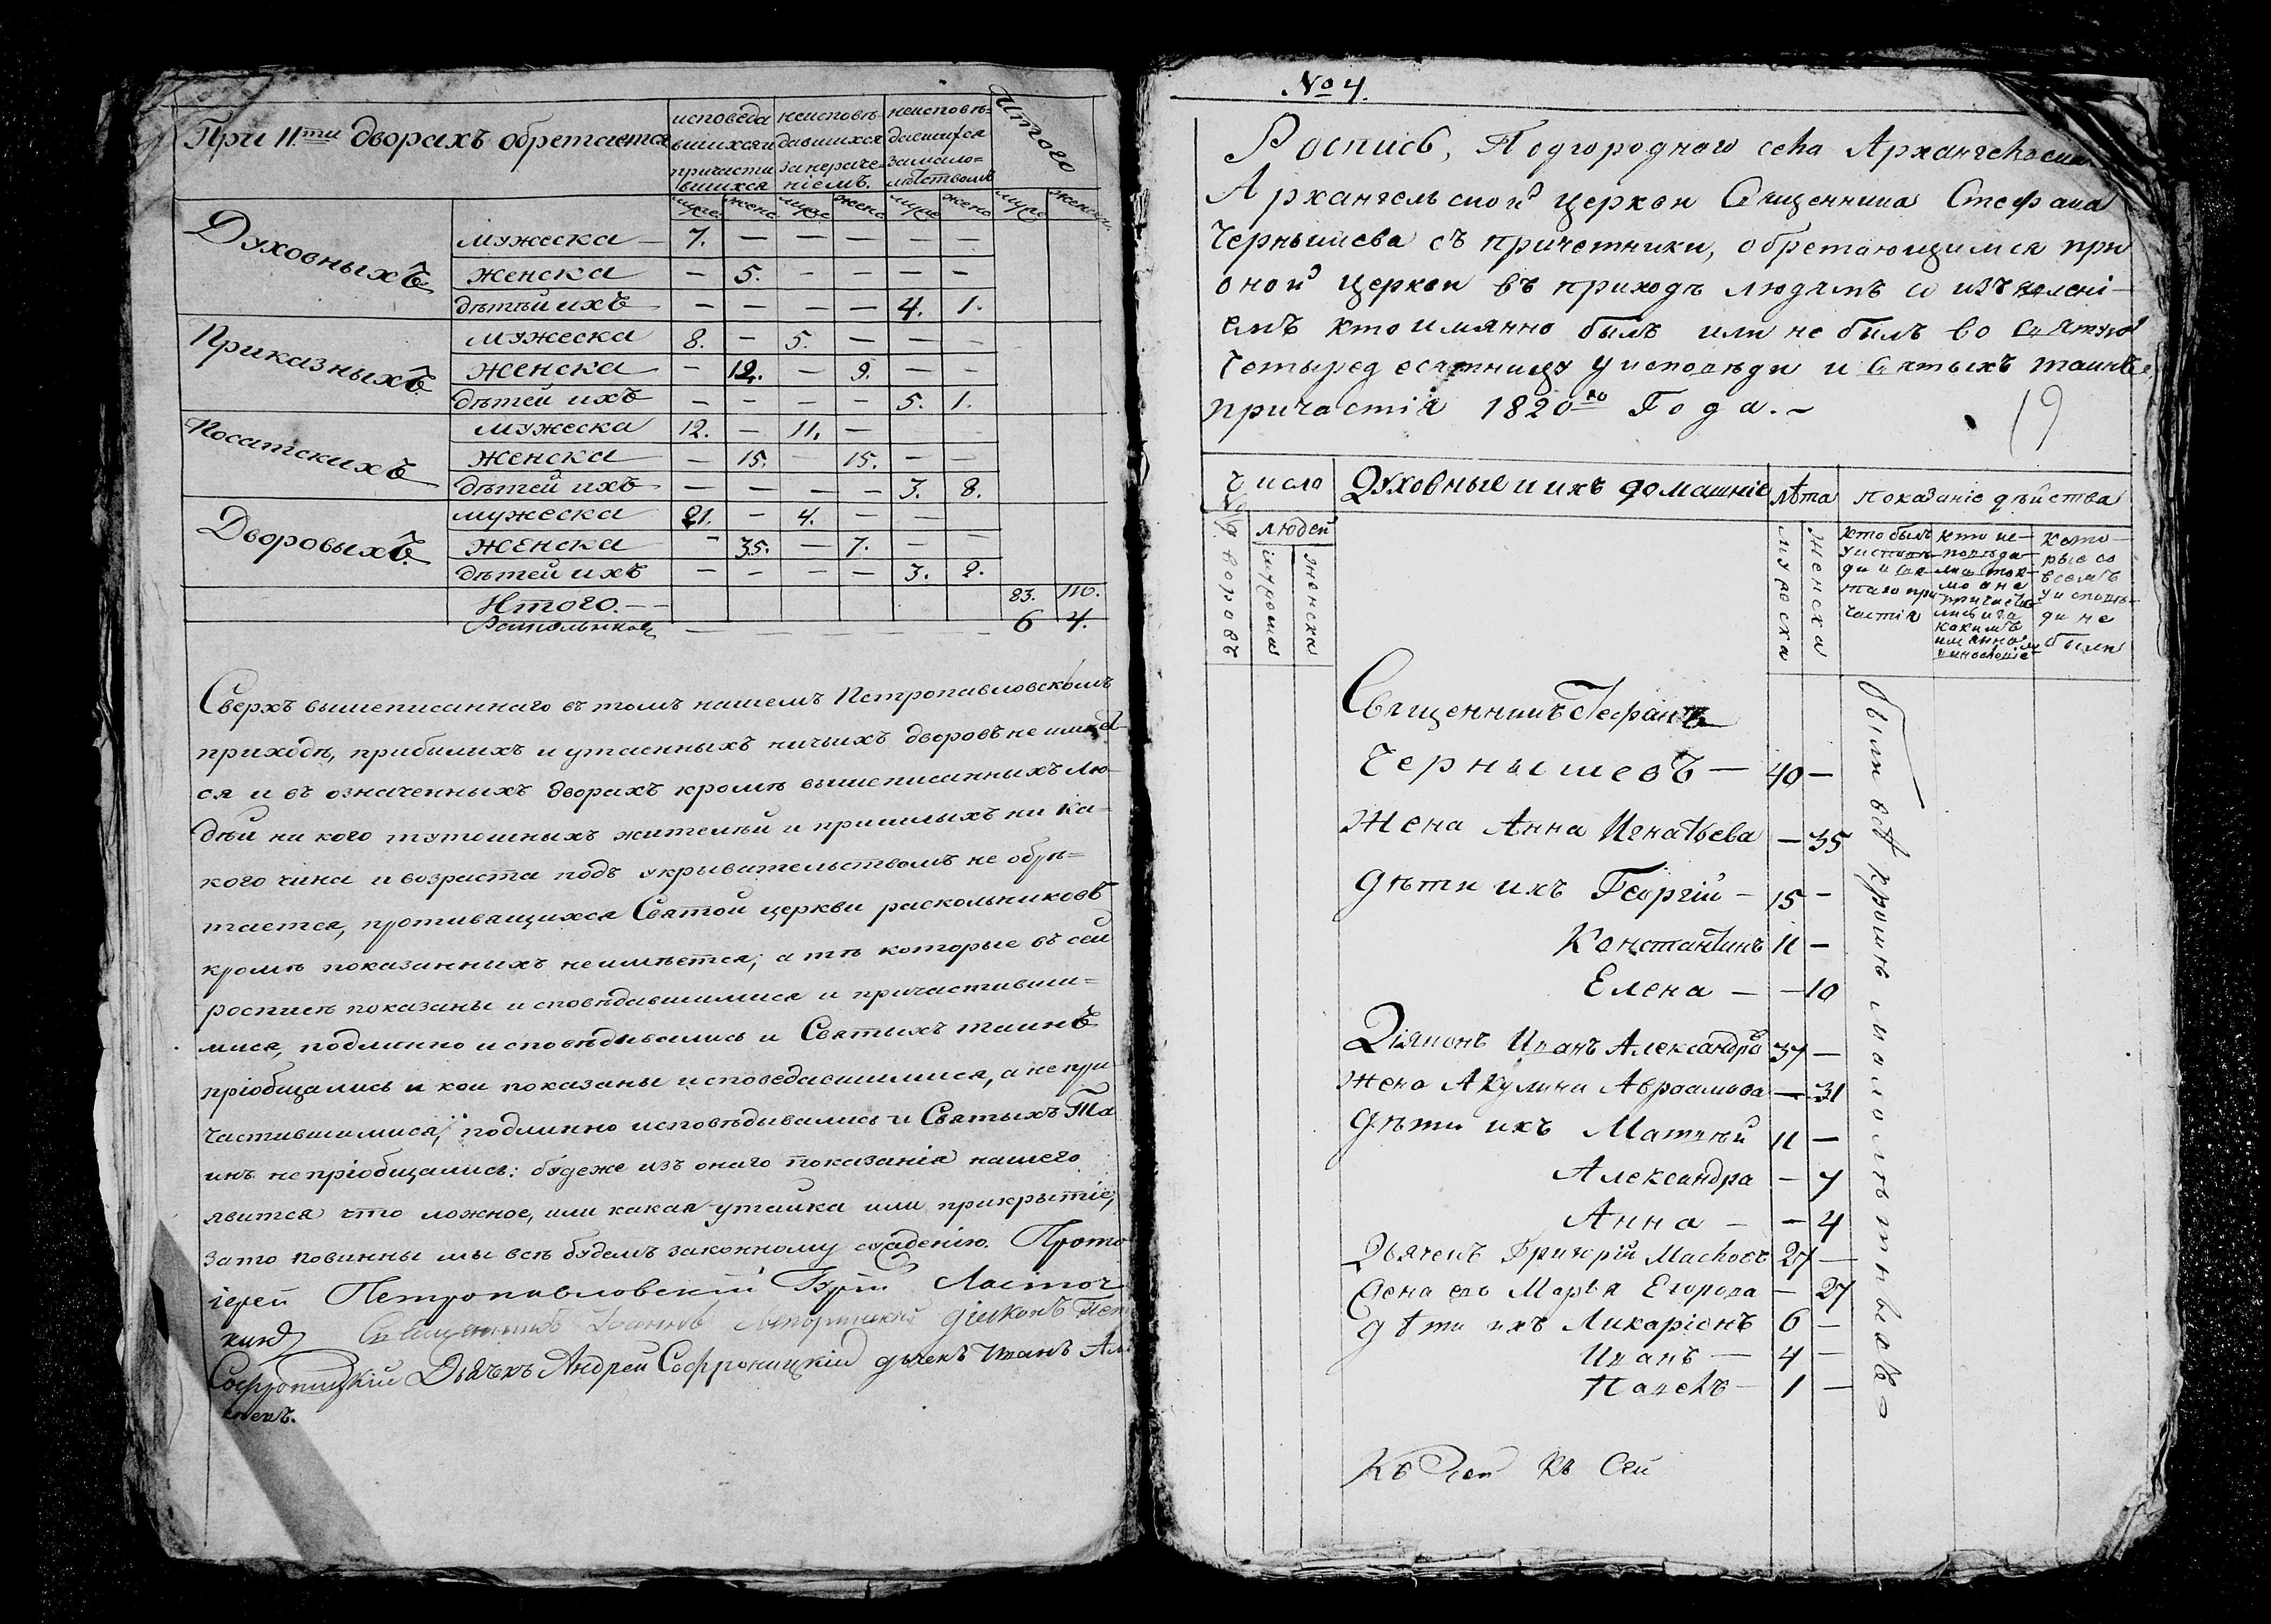 При 11.ти дворахъ обретается
исповеда
вшихся и
причасти
вшихся
неисповѣ-
давшихся
за нераче
ніемъ.
неисповѣ=
давшихся
за мало=
лѣтствомъ
Итого
муже женс муже женс муже женс муже женск
Духовныхъ
мужеска 7. — — — — —
женска — 5. — — — —
дѣтѣй ихъ — — — — 4. 1.
Приказныхъ
мужеска 8. — 5. — — —
женска — 12. — 9. — —
дѣтей ихъ — — — — 5. 1.
Посатскихъ
мужеска 12. — 11. —
женска — 15. — 15. — —
дѣтей ихъ — — — — 3. 8.
Дворовыхъ
мужеска 21. — 4. — —
женска — 35. — 7. — —
дѣтей ихъ — — — — 3. 2.
Итого. 83. 110.
6 4.
Сверхъ вышеписаннаго въ томъ нашемъ Петропавловскомъ
приходѣ, прибылыхъ и утаенныхъ ничьихъ дворовъ не имѣет-
ся и въ означенныхъ дворахъ кромѣ вышеписанныхъ лю-
дѣй ни кого тутошныхъ жителѣй и пришлыхъ ни ка-
кого чина и возраста подъ укрывательствомъ не обрѣ=
тается, противящихся Святой церкви раскольниковъ
кромѣ показанныхъ неимѣется; а тѣ которые въ сей
росписѣ показаны исповѣдавшимися и причастивши=
мися, подлинно исповѣдывались и Святыхъ таинъ
пріобщались и кои показаны исповедавшимися, а не при
частившимися, подлинно исповѣдывались и Святыхъ Та
инъ непріобщались: будеже изъ онаго показанія нашего
явится что ложное, или какая утайка или прикрытіе,
зато повинны мы всѣ будемъ законному сужденію. Прото
іерей Петропавловскій Гурій Ласточ
кинъ Священникъ Іоаннъ діаконъ Пет
Софроницкій Дьячекъ Андрей Софроницкій дьячекъ Иванъ Ал
№ 4.
Роспись, Подгороднаго села Архангельскаго
Архангельской церкви Священника Стефана
Чернышева съ причетники, обретающимся при
оной церкви въ приходѣ людямъ со изъявлені-
емъ кто имянно былъ или не былъ во Святую
Четыредесятницу у исповѣди и Святыхъ таинъ
причастія 1820го Года. -
19
Число
дворовъ
людей
мужеска
женска
Духовные и ихъ домашніе
лѣта
мужеска
женска
Показаніе дѣйства
кто былъ
у исповѣ-
ди и Свя-
таго при
частія
кто ис-
повѣда-
лись ток-
мо а не
причаща-
лись и за
какимъ
имянно
винословіе
кото-
рые со
всемъ
у исповѣ-
ди не
были
Священникъ Стефанъ
Чернышевъ — 40 —
Жена Анна Игнатьева — 35
Дѣти ихъ Георгій — 15 —
Константинъ 11 —
Елена — — 10
Діяконъ Иванъ Александро 37 —
Жена Акулина Авраамова — 31
Дѣти ихъ Матвѣй 11 —
Александра — 7
Анна — — 4
Дьячекъ Григорій Масловъ 27 —
Жена его Марья Егорова — 27
Дѣти ихъ Макаріонъ 6 —
Иванъ — 4 —
Павелъ — 1 —
были всѣ кромѣ малолѣтныхъ
Къ Сей Къ Сей